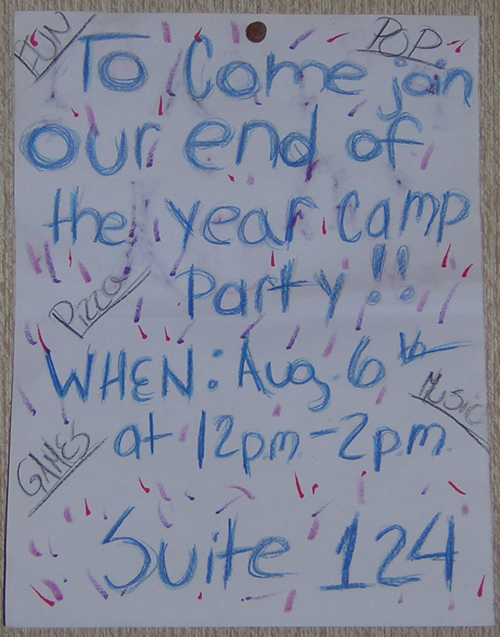 FUN
POP
To Come join
our end of
the year camp
Pizza
Party!!
WHEN: Aug 6th
MUSIC
GAMES
at 12pm-2pm.
Suite 124